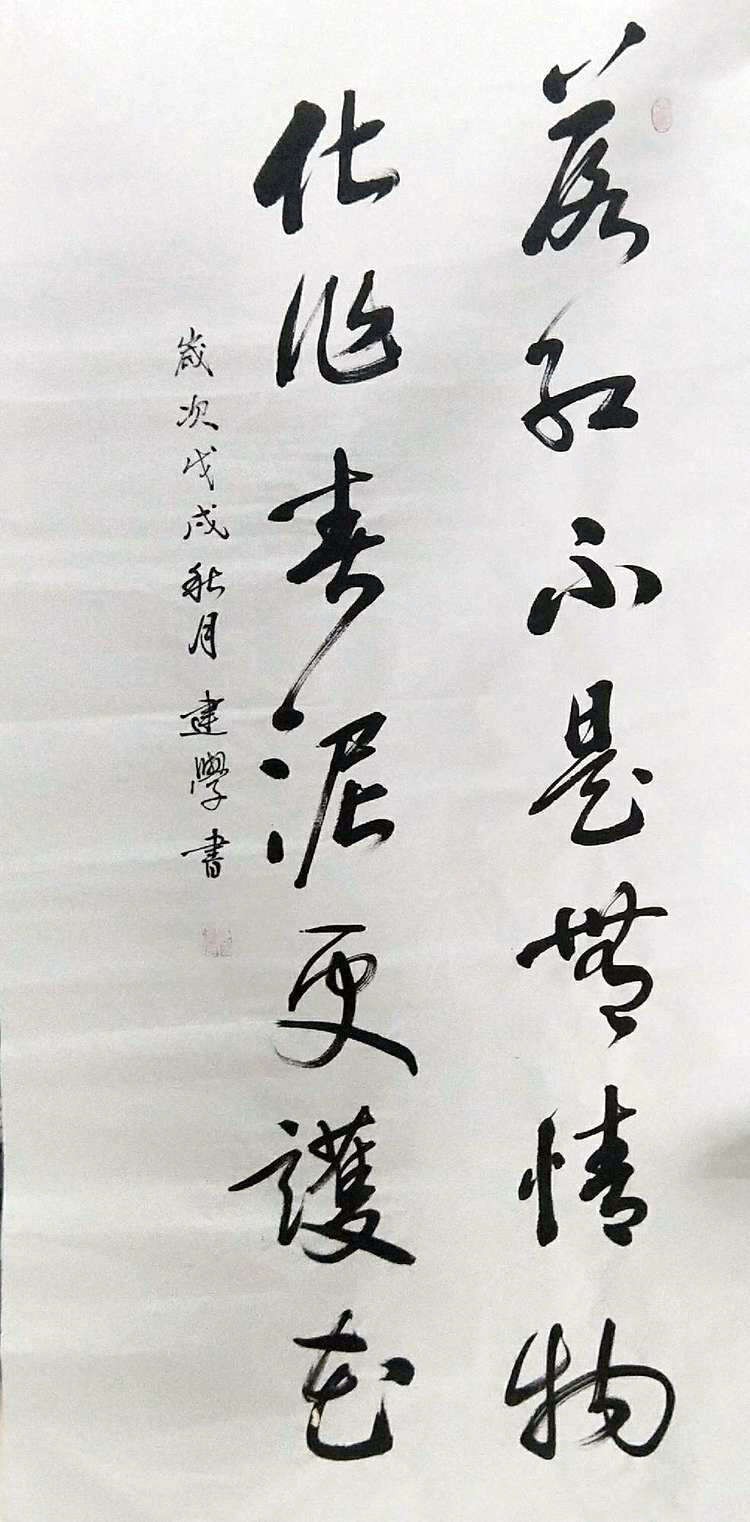 落红不是無情物
化作春泥更護花
歲次戊戌秋月建學書